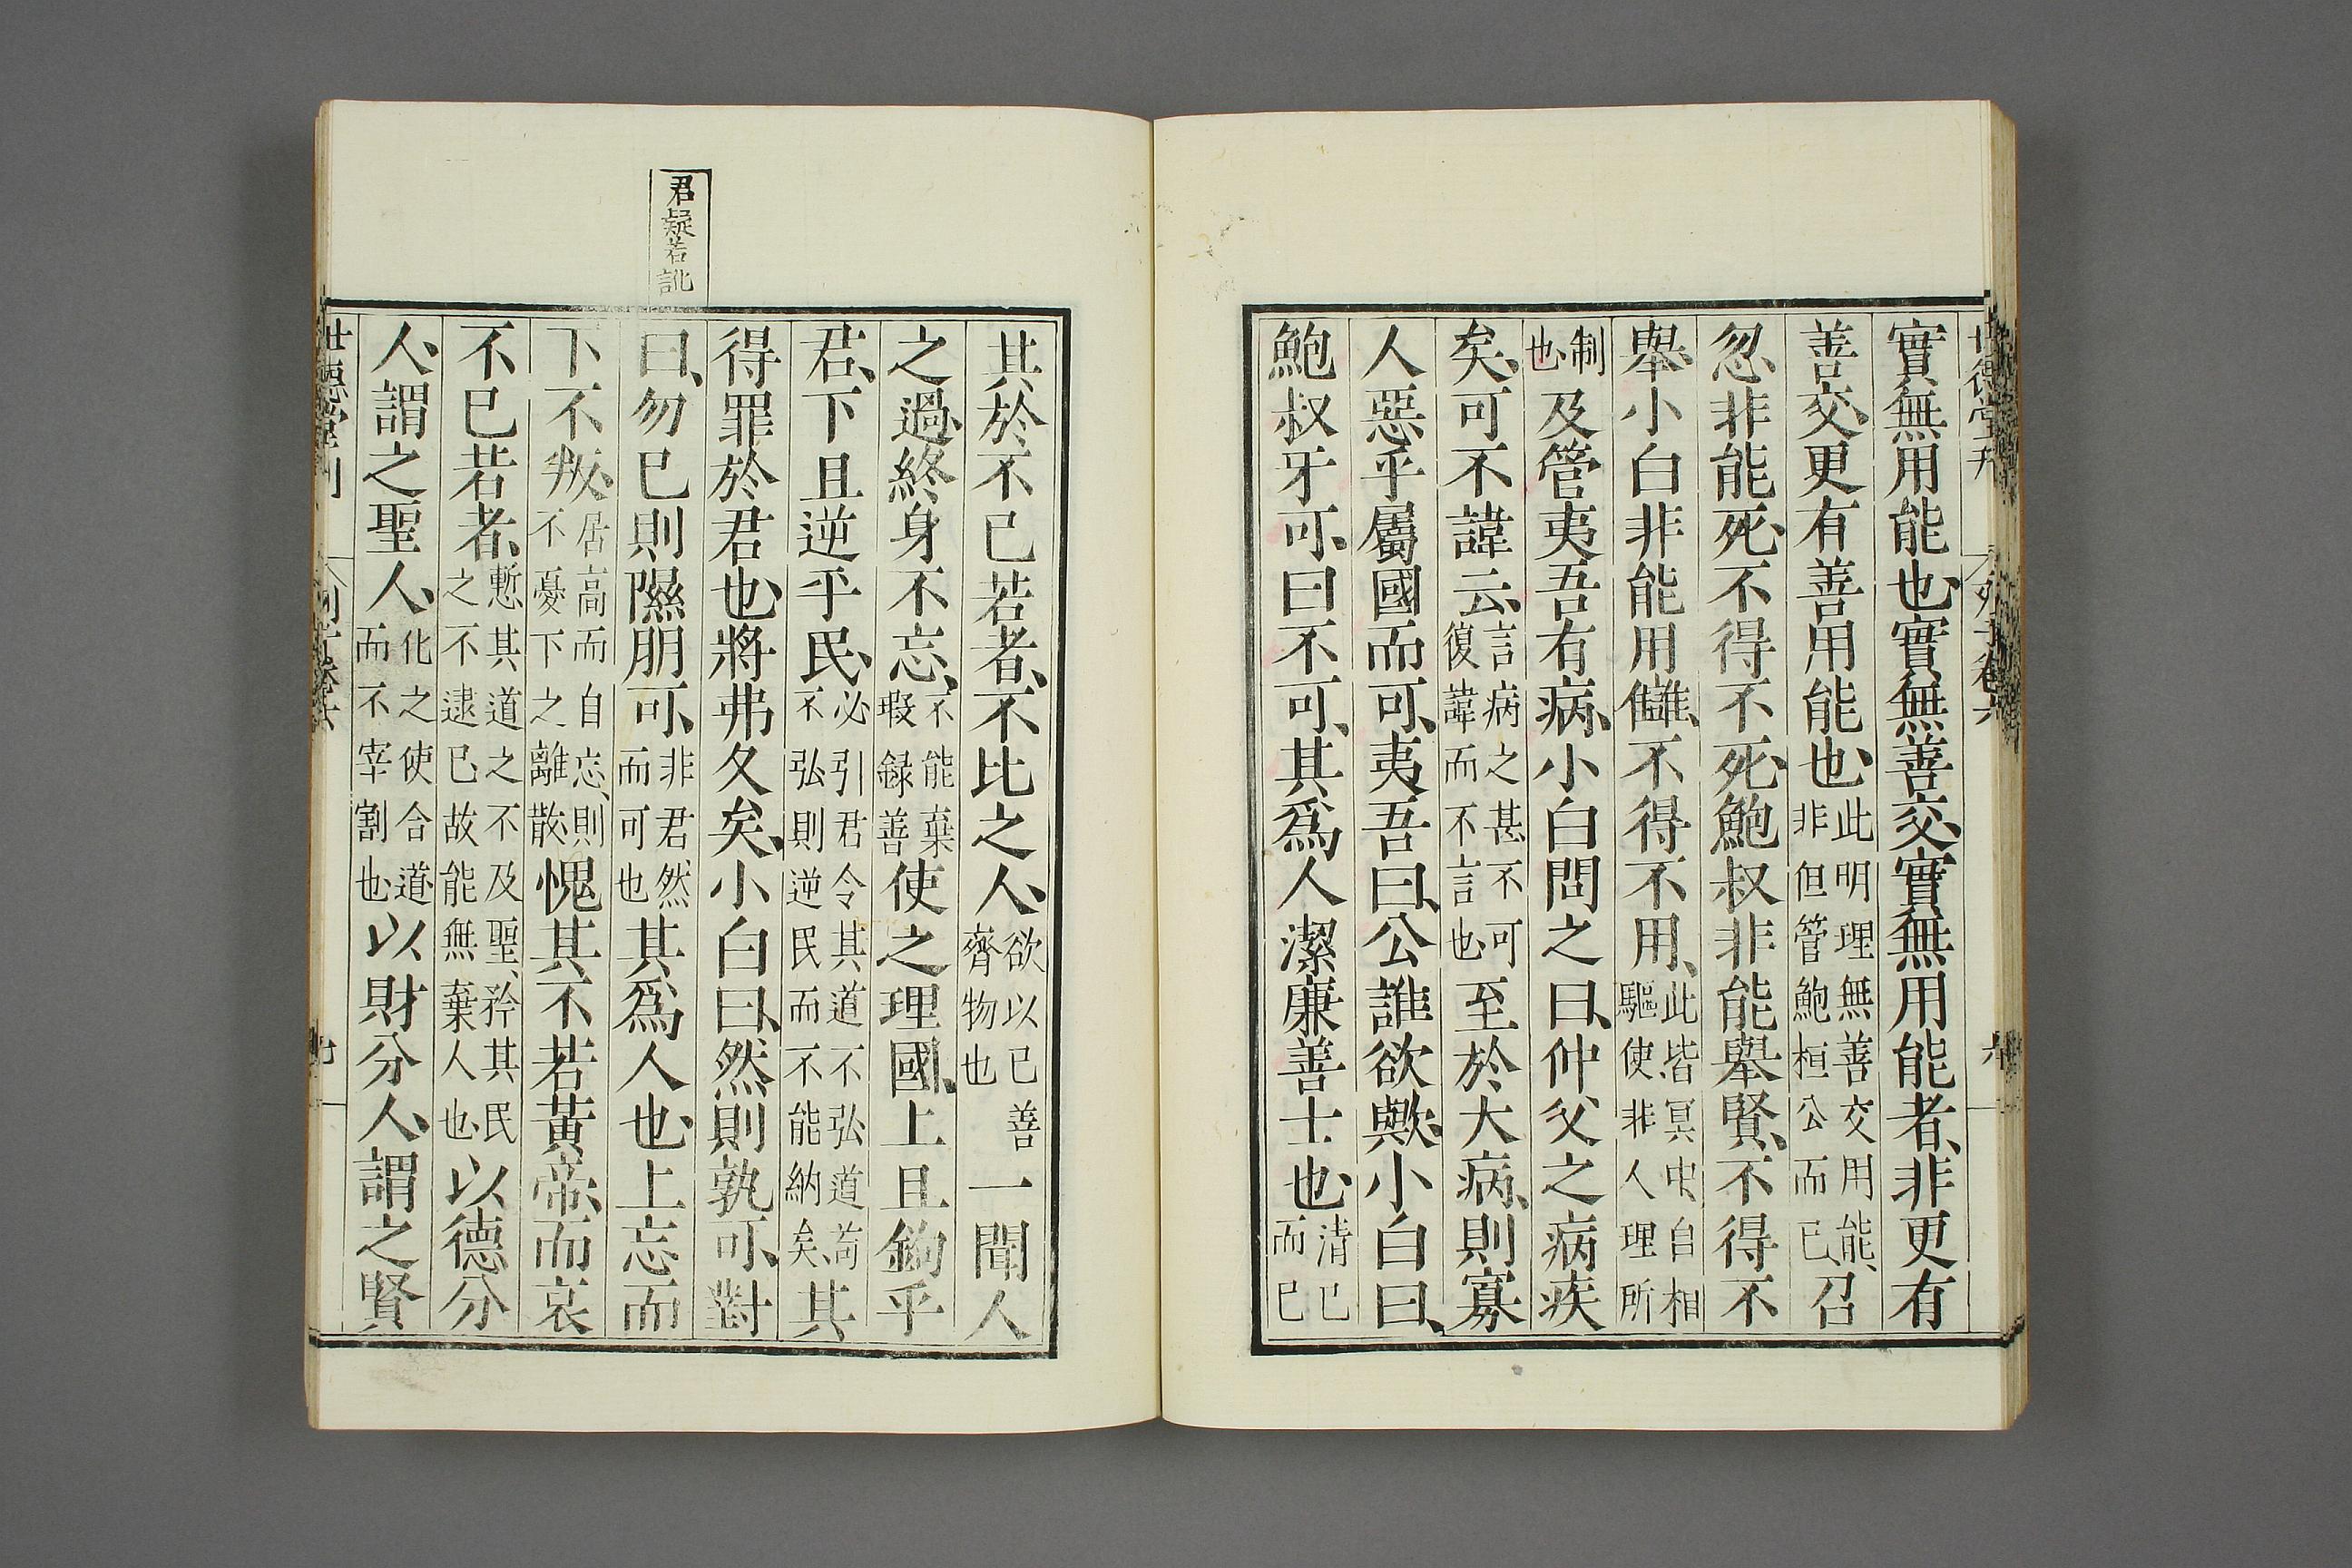 世德堂刊 列子卷六 六
實無用能也、實無善交、實無用能者、非更有
善交、更有善用能也、此明理無善交用能、非但管鮑桓公而已、召
忽、非能死、不得不死、鮑叔非能舉賢、不得不
舉、小白非能用讎、不得不用、此皆冥中自相驅使非人理所
制也、及管夷吾有病、小白問之曰、仲父之病疾
矣、可不諱云、言病之甚不可復諱而不言也、至於大病、則寡
人惡乎屬國而可、夷吾曰、公誰欲歟、小白曰、
鮑叔牙可、曰不可、其爲人潔廉善士也、清已而已
其於不已若者、不比之人、欲以已善齊物也一聞人
之過、終身不忘、不能棄瑕録善使之理國、上且鉤乎
君、下且逆乎民、必引君令其道不弘道苟不弘則逆民而不能納矣、其
得罪於君也、將弗久矣、小白曰、然則孰可、對
曰、勿已則隰朋可、非君然而可也其爲人也、上忘而
下不叛、居高而自忘、則不憂下之離散愧其不若黃帝、而哀
不已若者、慙其道之不及聖、矜其民之不逮已故能無棄人也、以德分
人、謂之聖人、化之使合道、而不宰割也、以財分人、謂之賢
君疑若訛
世德堂刊 列子卷六 七